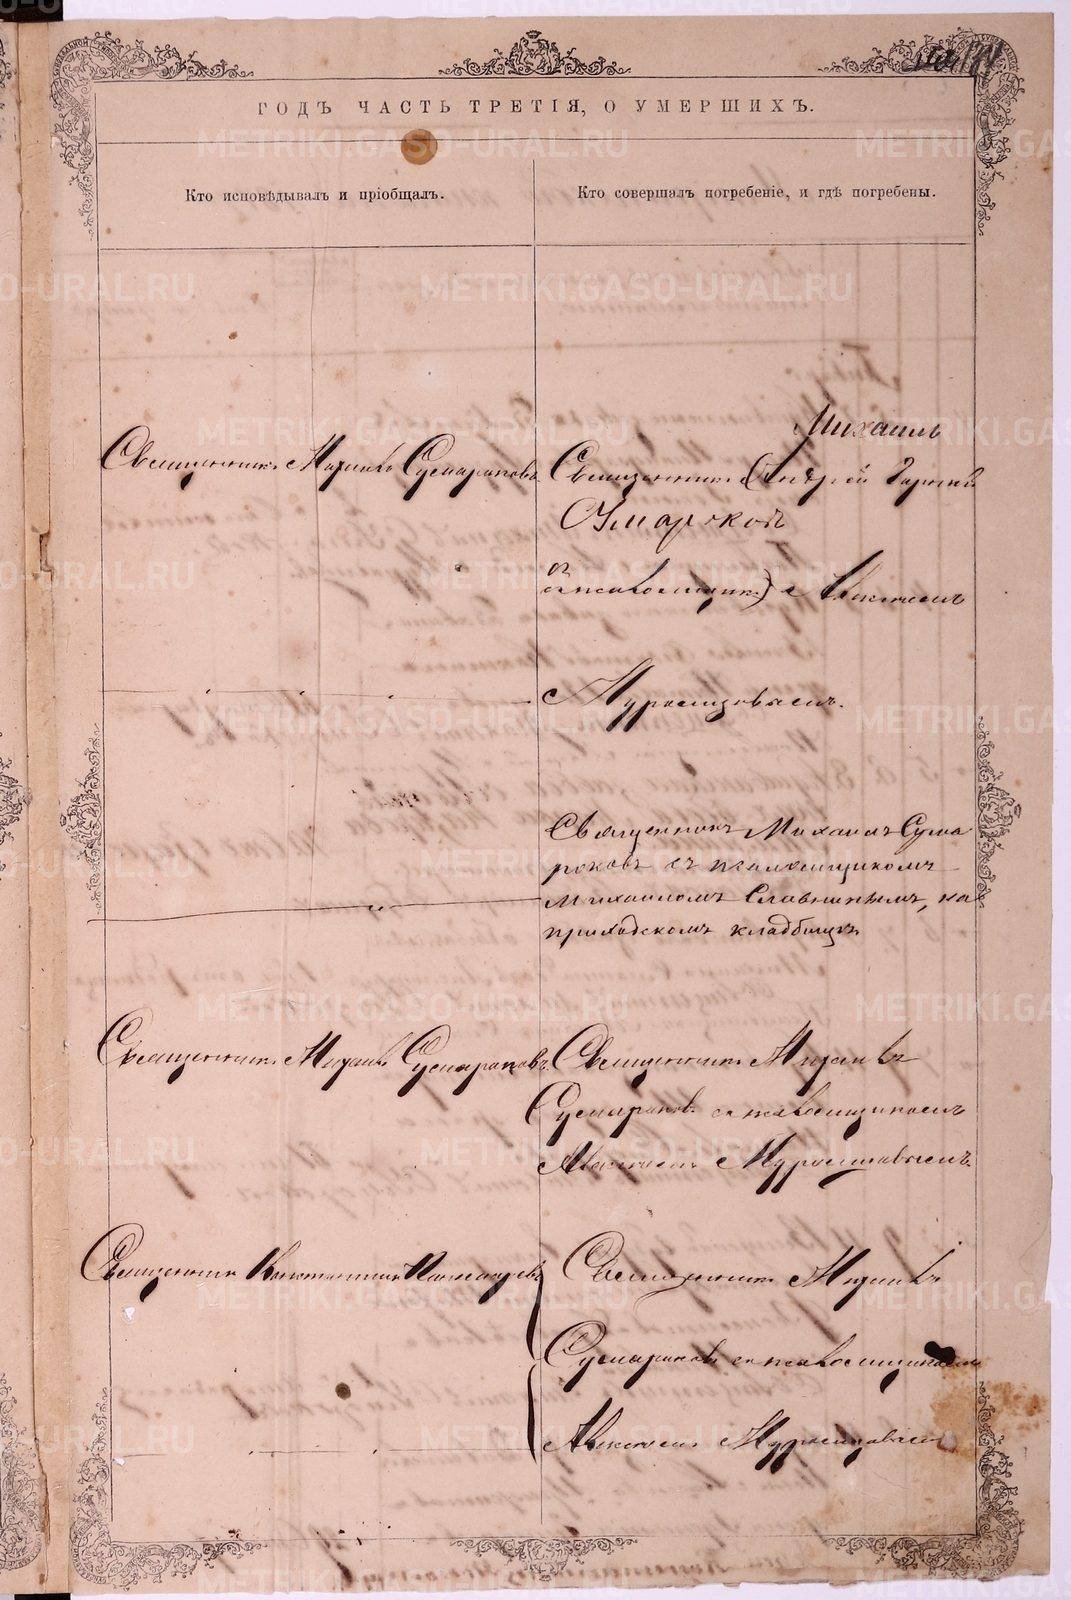 ГОДЪ ЧАСТЬ ТРЕТІЯ, О УМЕРШИХЪ.
Кто исповѣдывалъ и пріобщалъ.
Кто совершалъ погребеніе, и гдѣ погребены.
Священникъ Михаилъ Сумароковъ
Михаилъ
Священникъ
Сумароковъ
съ псаломщик) Алексѣемъ
Священникъ Михаилъ Сума
роковъ съ псаломщикомъ
Михаиломъ Славнинымъ, на
приходскомъ кладбищѣ
Священникъ Михаилъ Сумароковъ
Священникъ Михаилъ
Сумароковъ съ псаломщикомъ
Алексѣемъ
Священникъ Константинъ
Священникъ Михаилъ
Сумароковъ съ псаломщикомъ
Алексѣемъ
METRIKI.GASO-URAL.RU